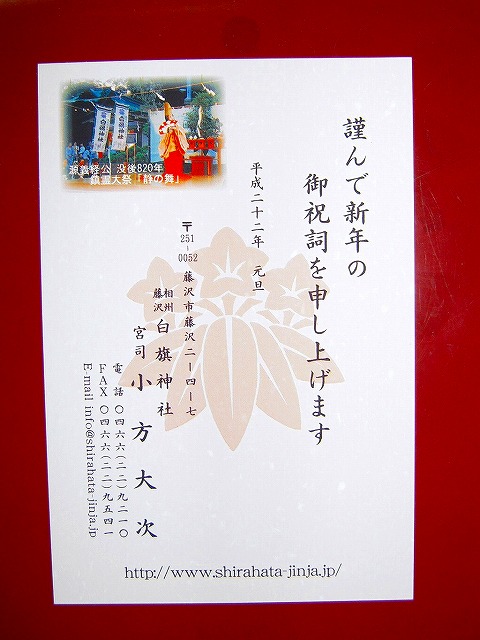 謹んで新年の
御祝詞を申し上げます
平成二十二年 元旦
〒251-0052 藤沢市藤沢二-四-七
相州藤沢 白旗神社
宮司 小方大次
電話 〇四六六(二二)九二一〇
FAX 〇四六六(二二)九五四一
E-mail info@shirahata-jinja.jp
源義経公 没後820年
鎮霊大祭「静の舞」
白旗神社
白旗神社
http://www.shirahata-jinja.jp/